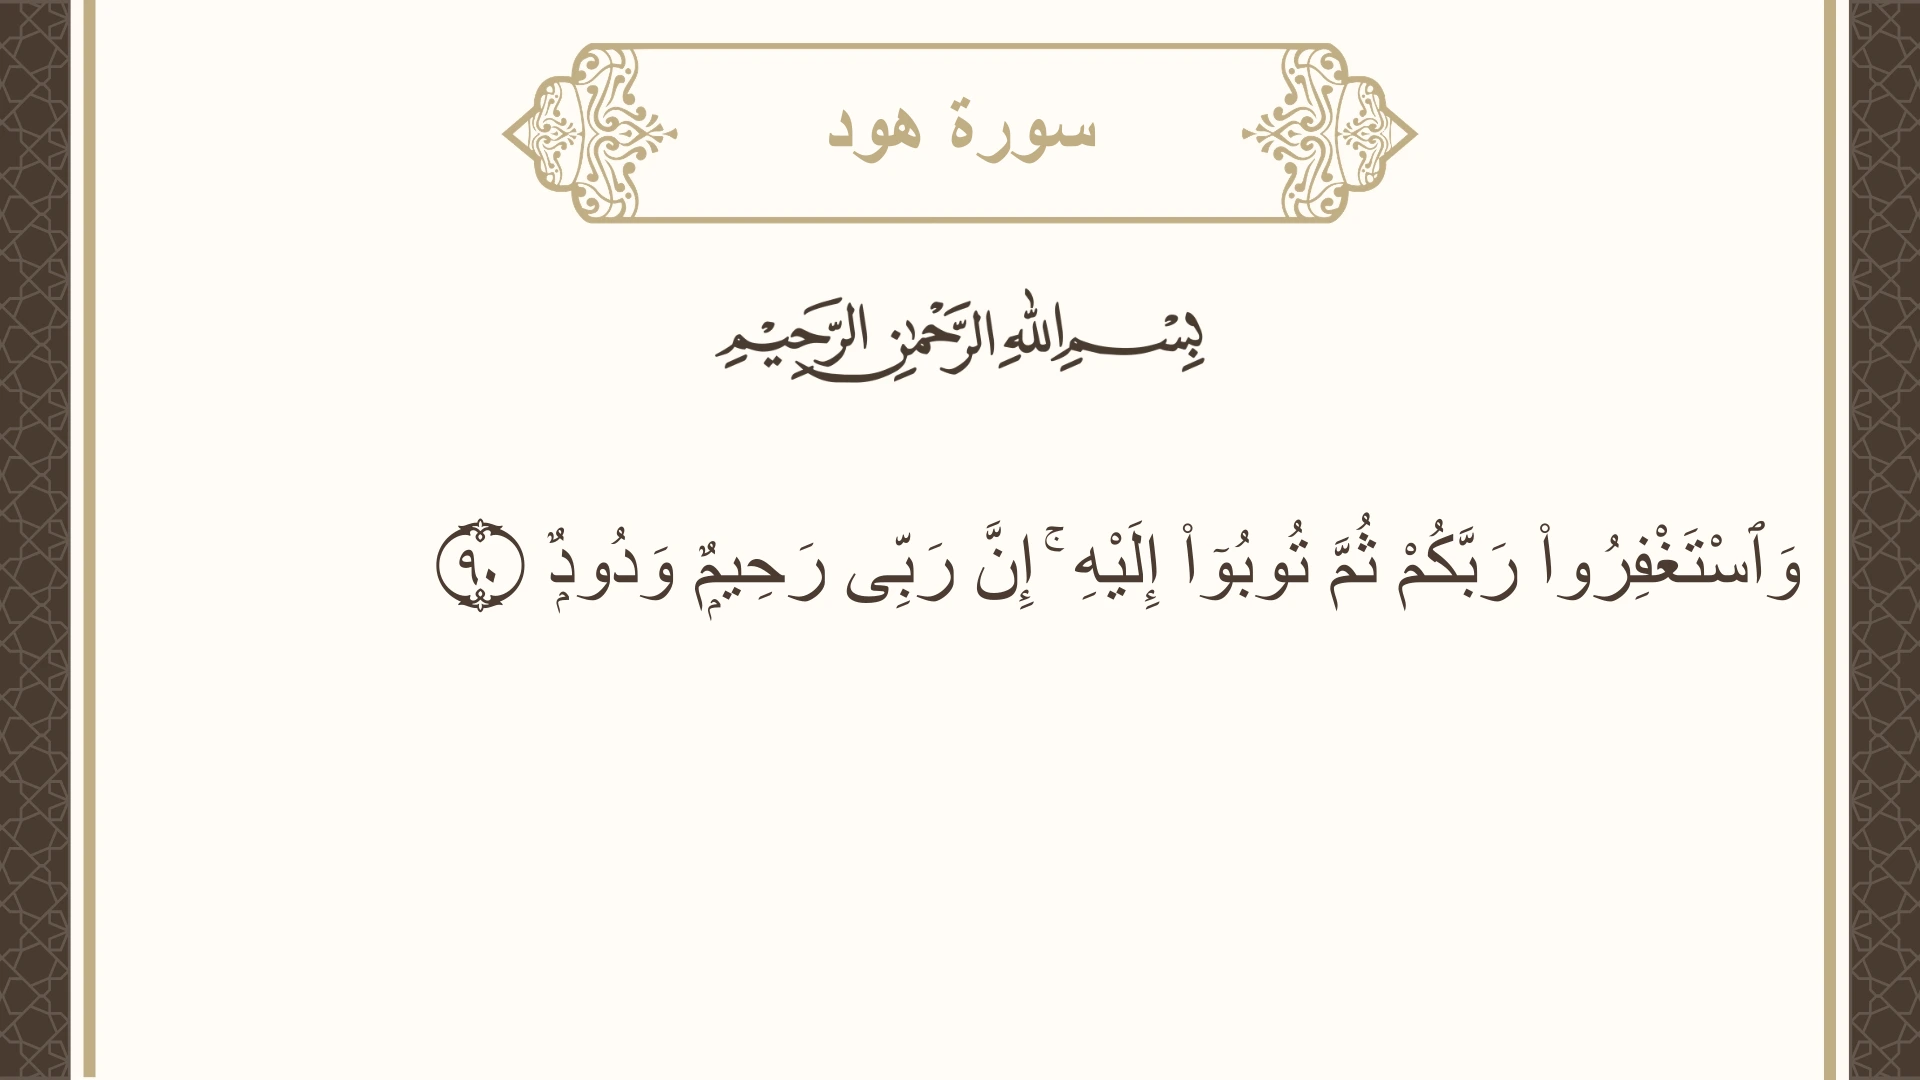 سورة هود
بِسْمِ اللهِ الرَّحْمٰنِ الرَّحِيْمِ
وَٱسْتَغْفِرُوا۟ رَبَّكُمْ ثُمَّ تُوبُوٓا۟ إِلَيْهِ ۚ إِنَّ رَبِّى رَحِيمٌۭ وَدُودٌۭ ٩٠